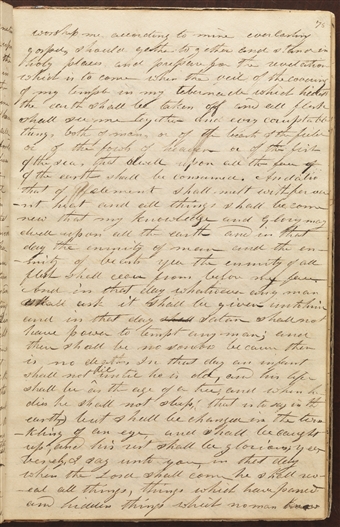 worship me according to mine everlasting
gospel should gether together and stand in
holy places and prepare for the revelation
which is to come when the veil of the covering
of my temple in my tabernacle which hideth
the earth shall be taken off and all flesh
shall see me together and evry corruptable
thing both of man or of the beasts of the field
or of the fowls of heaven or of the fish
of the sea that dwell upon all the face of
of the earth shall be consumed. And also
that of element shall melt with ferve
nt heat and all things shall become
new that my knowledge and glory may
dwell upon all the earth and in that
day the enmity of man and the en
mity of beasts yea the enmity of all
flesh shall cease from before my face
And in that day whatsoever any man
shall ask it shall be given unto him
and in that day Satan shall not
have power to tempt any man; and
there shall be no sorrow because there
is no death In that day an infant
shall not die until he is old, and his life
shall be as the age of a tree, and when he
dies he shall not sleep, that is to say in the
earth, but shall be changed in the twin
kling of an eye and shall be caught
up, and his rest shall be glorious, yea
verely, I say unto you in that day
when the Lord shall come he shall re
veal all things, things which have passed
and hidden things which no man knew